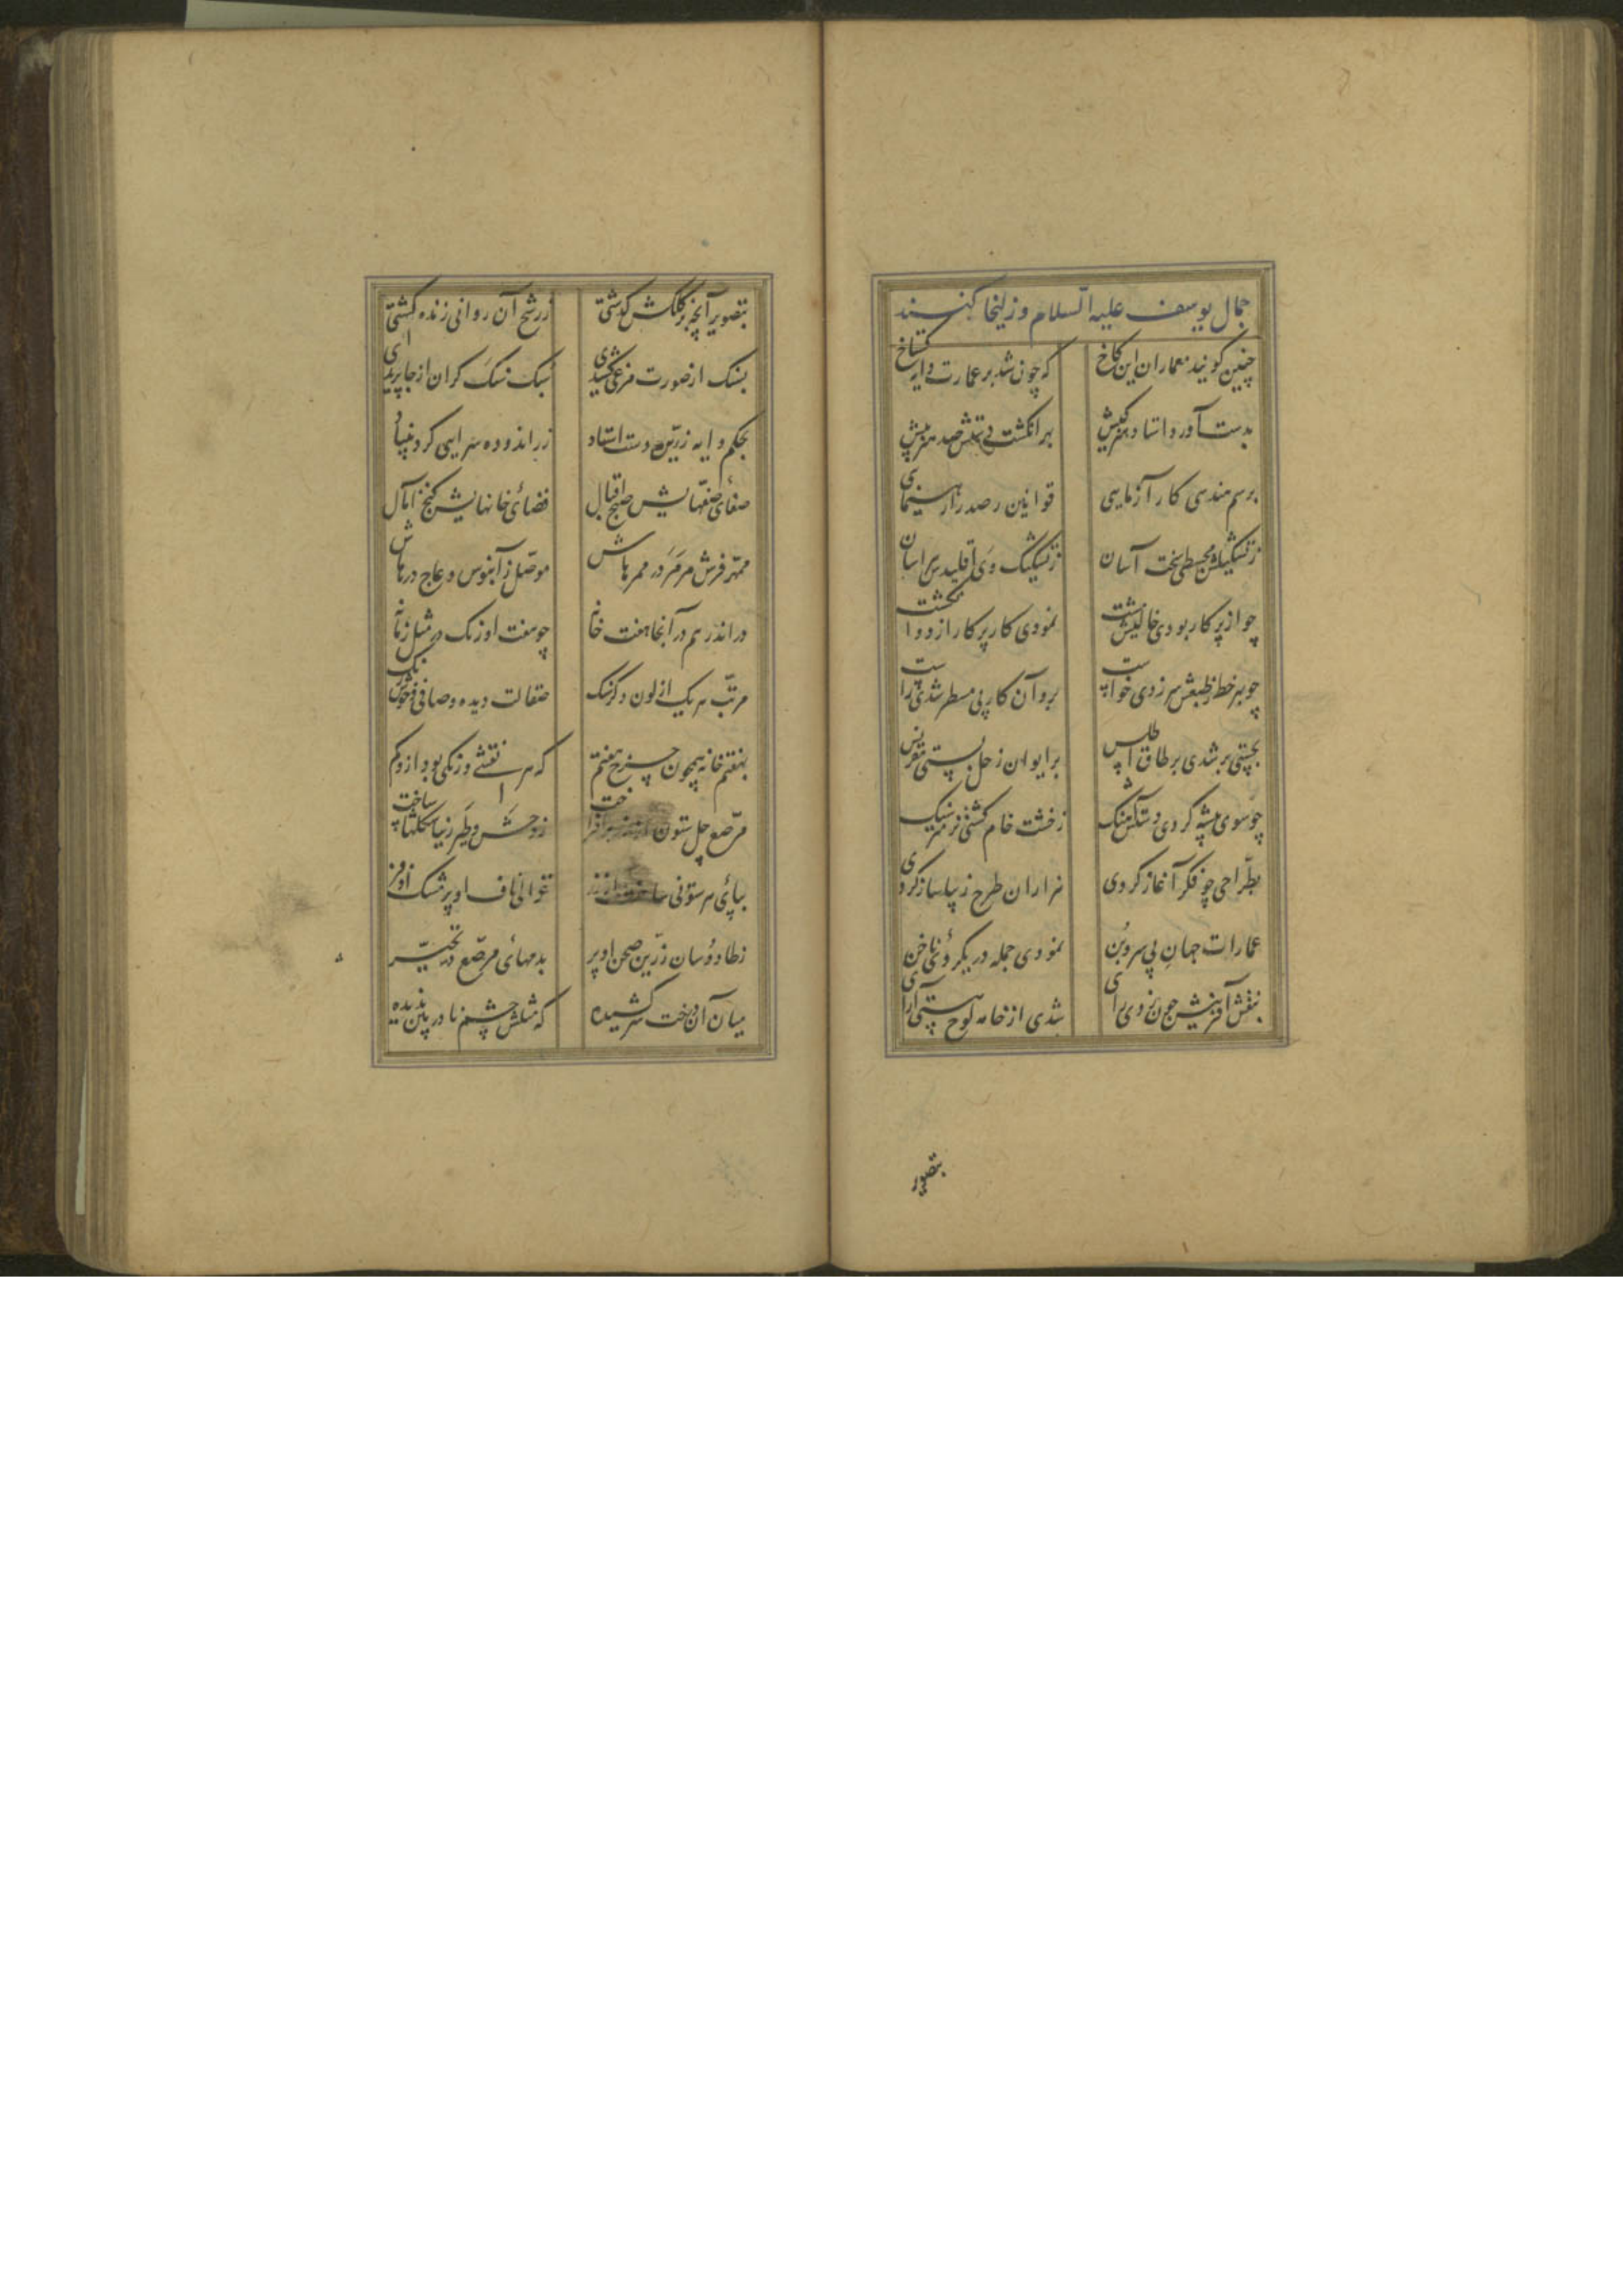 جمال یوسف علیه السلام و زلیخا کنند
چنین کویند معماران این کاخ که چون شد بر عمارت دایه کستاخ
بدست آورد استاد هنرکیش بهر انکشت دستش صد هنر بیش
برسم هندسی کار آزمایی قوانین رصد را رهنمای
ز تشکیلش مجسطی سخت آسان ز تشکیک وی اقلیدس هراسان
چو از پرکار بودی خالیش مشت نمودی کار پرکار از دو انکشت
چو بهر خط ز طبعش سر زدی خواست برو آن کار بی مسطر شدی راست
بجستی بر شدی بر طاق اطلس بر ایوان زحل بستی مقرنس
چو سوی تیشه کردی دستش آهنک ز خشت خام کشتی نرم تر سنک
بطراحی چو فکر آغاز کردی هزاران طرح زیبا ساز کردی
عمارات جهان بی سر و بن نمودی جمله در یکروی ناخن
بنقش آفرینش چون زدی رای شدی از خامه لوح هستی آرای
بتصویر
بتصویر آنچه بر کلکش کذشتی ز رشح آن روانی زنده کشتی
بسنک ار صورت مرغی کشیدی سبک سنک کران از جا پریدی
بحکم دایه زرین دست استاد زر اندوده سرایی کرد بنیاد
صفای صفهایش صبح اقبال فضای خانهایش کنج آمال
ممهد فرش مرمر در ممرهاش موصل ز آبنوس و عاج درهاش
در اندر هم در آنجا هفت خانه چو هفت اورنک در مثل زمانه
مرتب هر یک از لون دکر سنک صقالت دیده و صافی و خوش رنک
بهفتم خانه همچون چرخ هفتم که هر نقشی و رنکی بود ازو کم
مرصع چل ستون از زر برافراخت ز وحش و طیر زیبا شکلها ساخت
بپای هر ستونی ساخت از زر غزالی ناف او پر مشک اذفر
ز طاووسان زرین صحن او پر بدمهای مرصع در تحیر
میان آن درخت سر کشیده که مثلش چشم نادربین ندیده